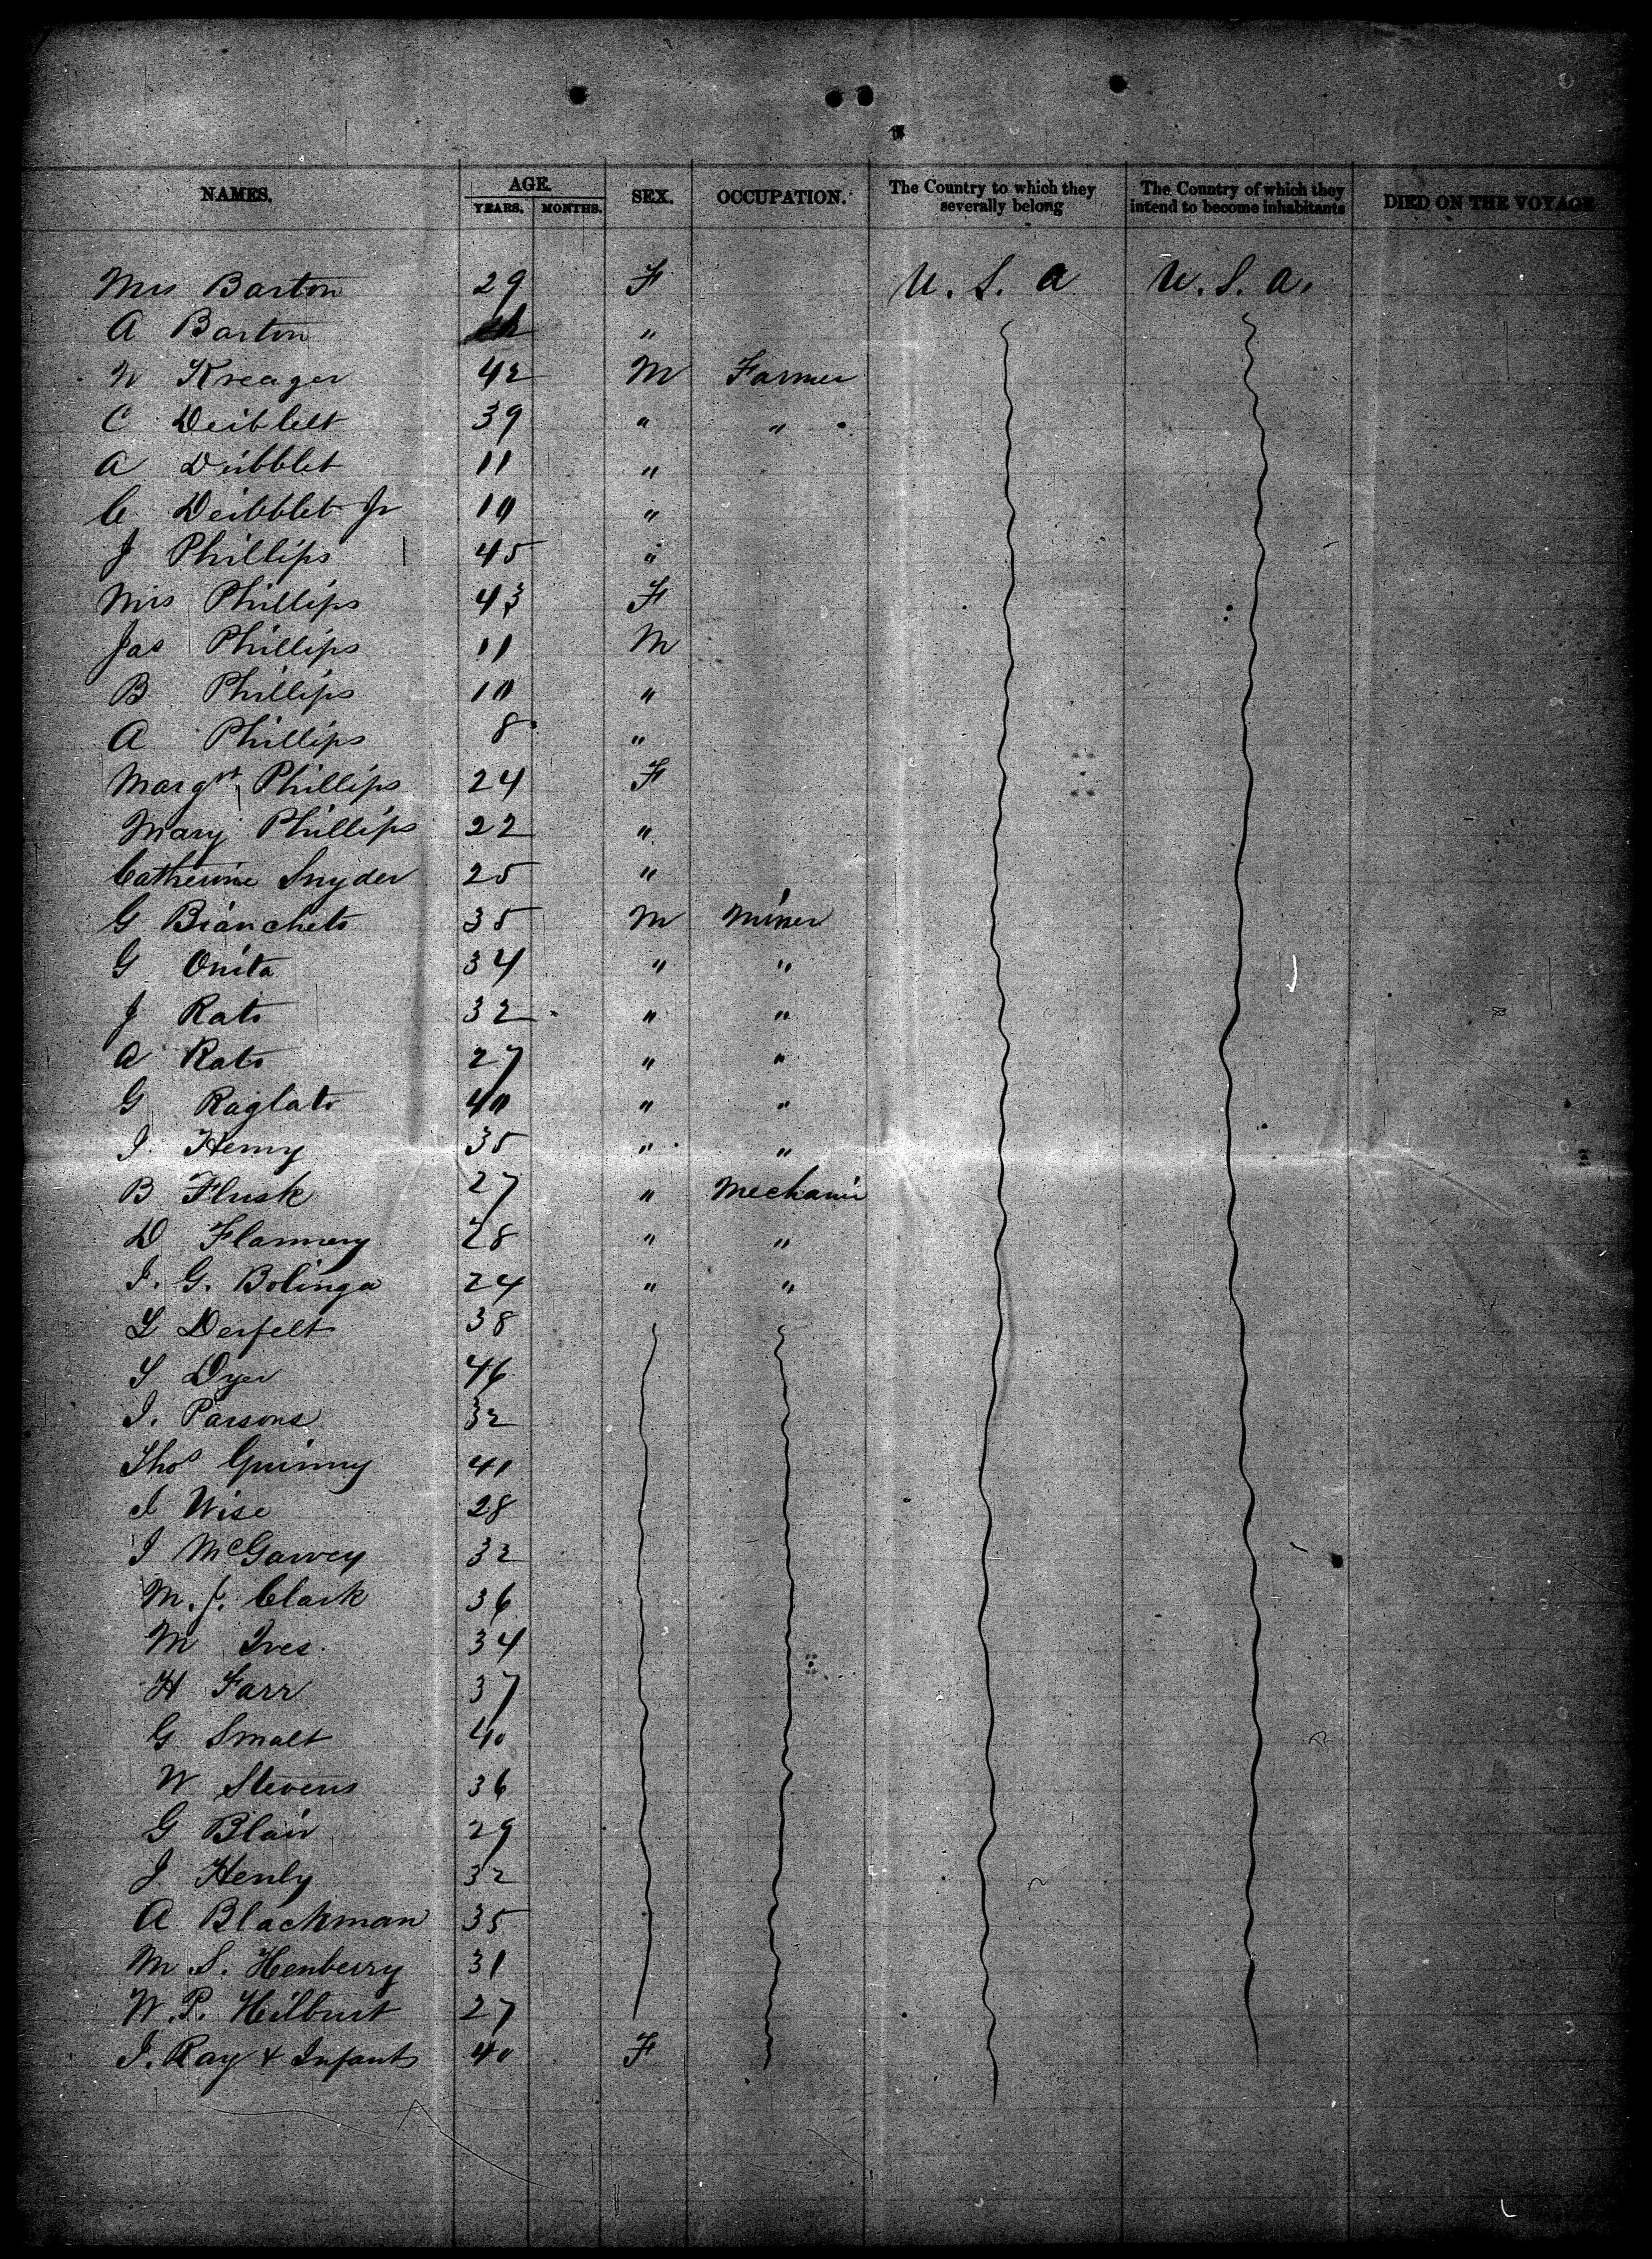 NAMES. AGE. YEARS. MONTHS. SEX. OCCUPATION. The Country to which they severally belong The Country of which they intend to become inhabitants DIED ON THE VOYAGE
Mrs Barton 29 F U. S. A U. S. A.
A Barton "
W Kreager 42 M Farmer
C Deiblelt 39 " "
A Deibblet 11 "
C Deibblet Jr 10 "
J Phillips 45 "
Mrs Phillips 43 F
Jas Phillips 11 M
B Phillips 10 "
A Phillips 8 "
Margrt Phillips 24 F
Mary Phillips 22 "
Catherine Snyder 25 "
G Biancheto 35 M Miner
G Onita 34 " "
J Rato 32 " "
A Rato 27 " "
G Raglato 40 " "
I. Henry 35 " "
B Flusk 27 " Mechanic
D Flannery 28 " "
I. G. Bolinga 24 " "
L Derfelt 38
S Dyer 46
I. Parsons 32
Thos Guinny 41
I Wise 28
I McGarvey 32
M. J. Clark 36
M Ives 34
H Farr 37
G Smalt 40
W Stevens 36
G Blair 29
J Henly 32
A Blackman 35
M S. Henberry 31
W. P. Hilburt 27
I. Ray & Infant 40 F